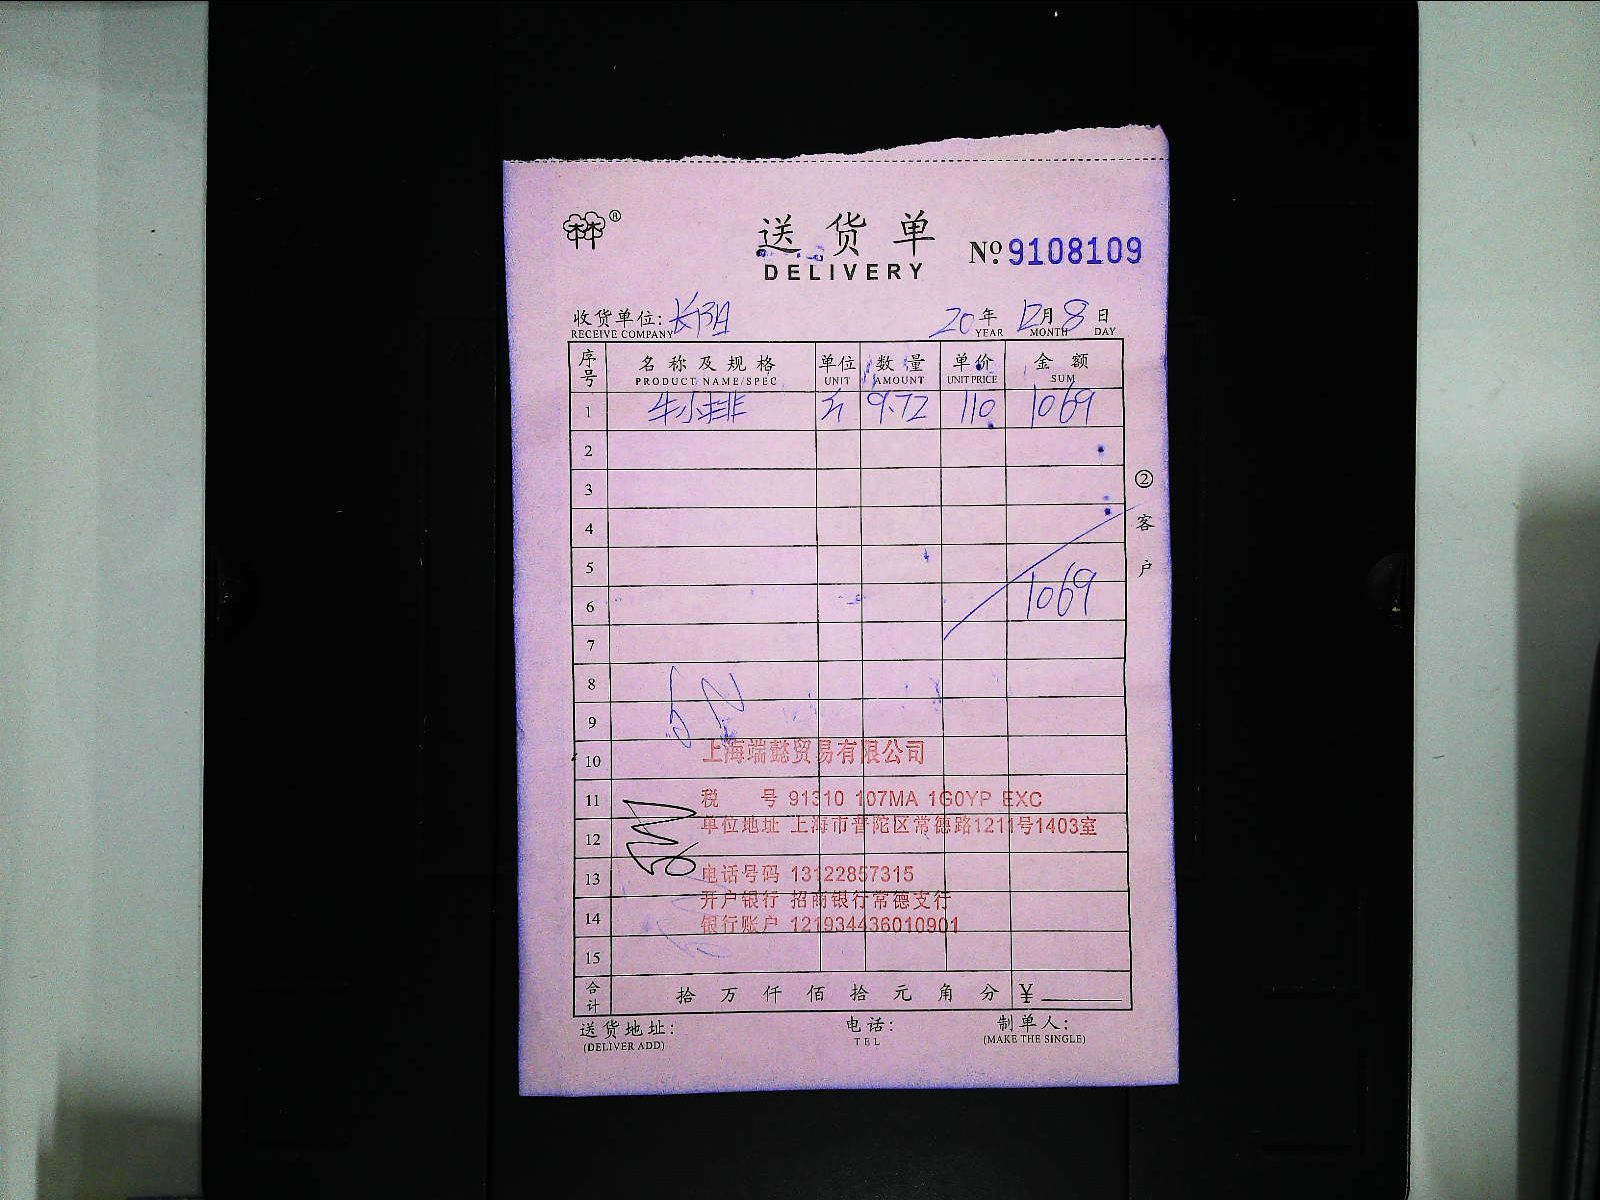 送货单
DELIVERY
№ 9108109
收货单位: 长阳 20年 12月 8日
RECEIVE COMPANY YEAR MONTH DAY
序号 名称及规格 单位 数量 单价 金额
PRODUCT NAME/SPEC UNIT AMOUNT UNIT PRICE SUM
1 牛小排 斤 9.72 110 1069
2
3
4
5
6 1069
7
8
9
10
11
12
13
14
15
② 客户
上海端懿贸易有限公司
税 号 91310 107MA 1G0YP EXC
单位地址 上海市普陀区常德路1211号1403室
电话号码 13122857315
开户银行 招商银行常德支行
银行账户 121934436010901
合计 拾 万 仟 佰 拾 元 角 分 ¥
送货地址: 电话: 制单人:
(DELIVER ADD) TEL (MAKE THE SINGLE)